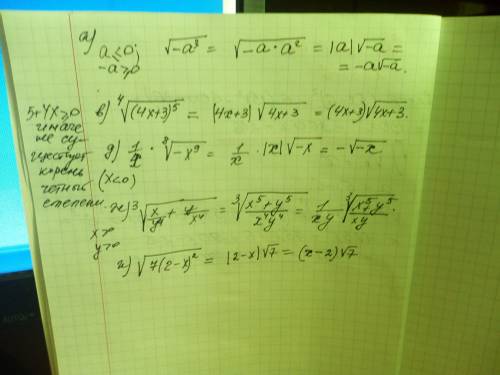 а) a ≤ 0; √(-a³) = √(-a · a²) = |a|√(-a) =
-a ≥ 0 = -a√(-a).
5+4x ≥ 0
иначе
не су-
ществует
корень
четный
степени.
в) ⁴√((4x+3)⁵) = |4x+3| √(4x+3) = (4x+3)√(4x+3).
д) 1/x · ⁸√(-x⁹) = 1/x · |x|√(-x) = -√(-x).
(x<0)
ж) ³√(x/y⁴ + y/x⁴) = ³√((x⁵+y⁵)/(x⁴y⁴)) = 1/(xy) ³√((x⁵+y⁵)/(xy)).
и) √(7(2-x)²) = |2-x|√7 = (x-2)√7